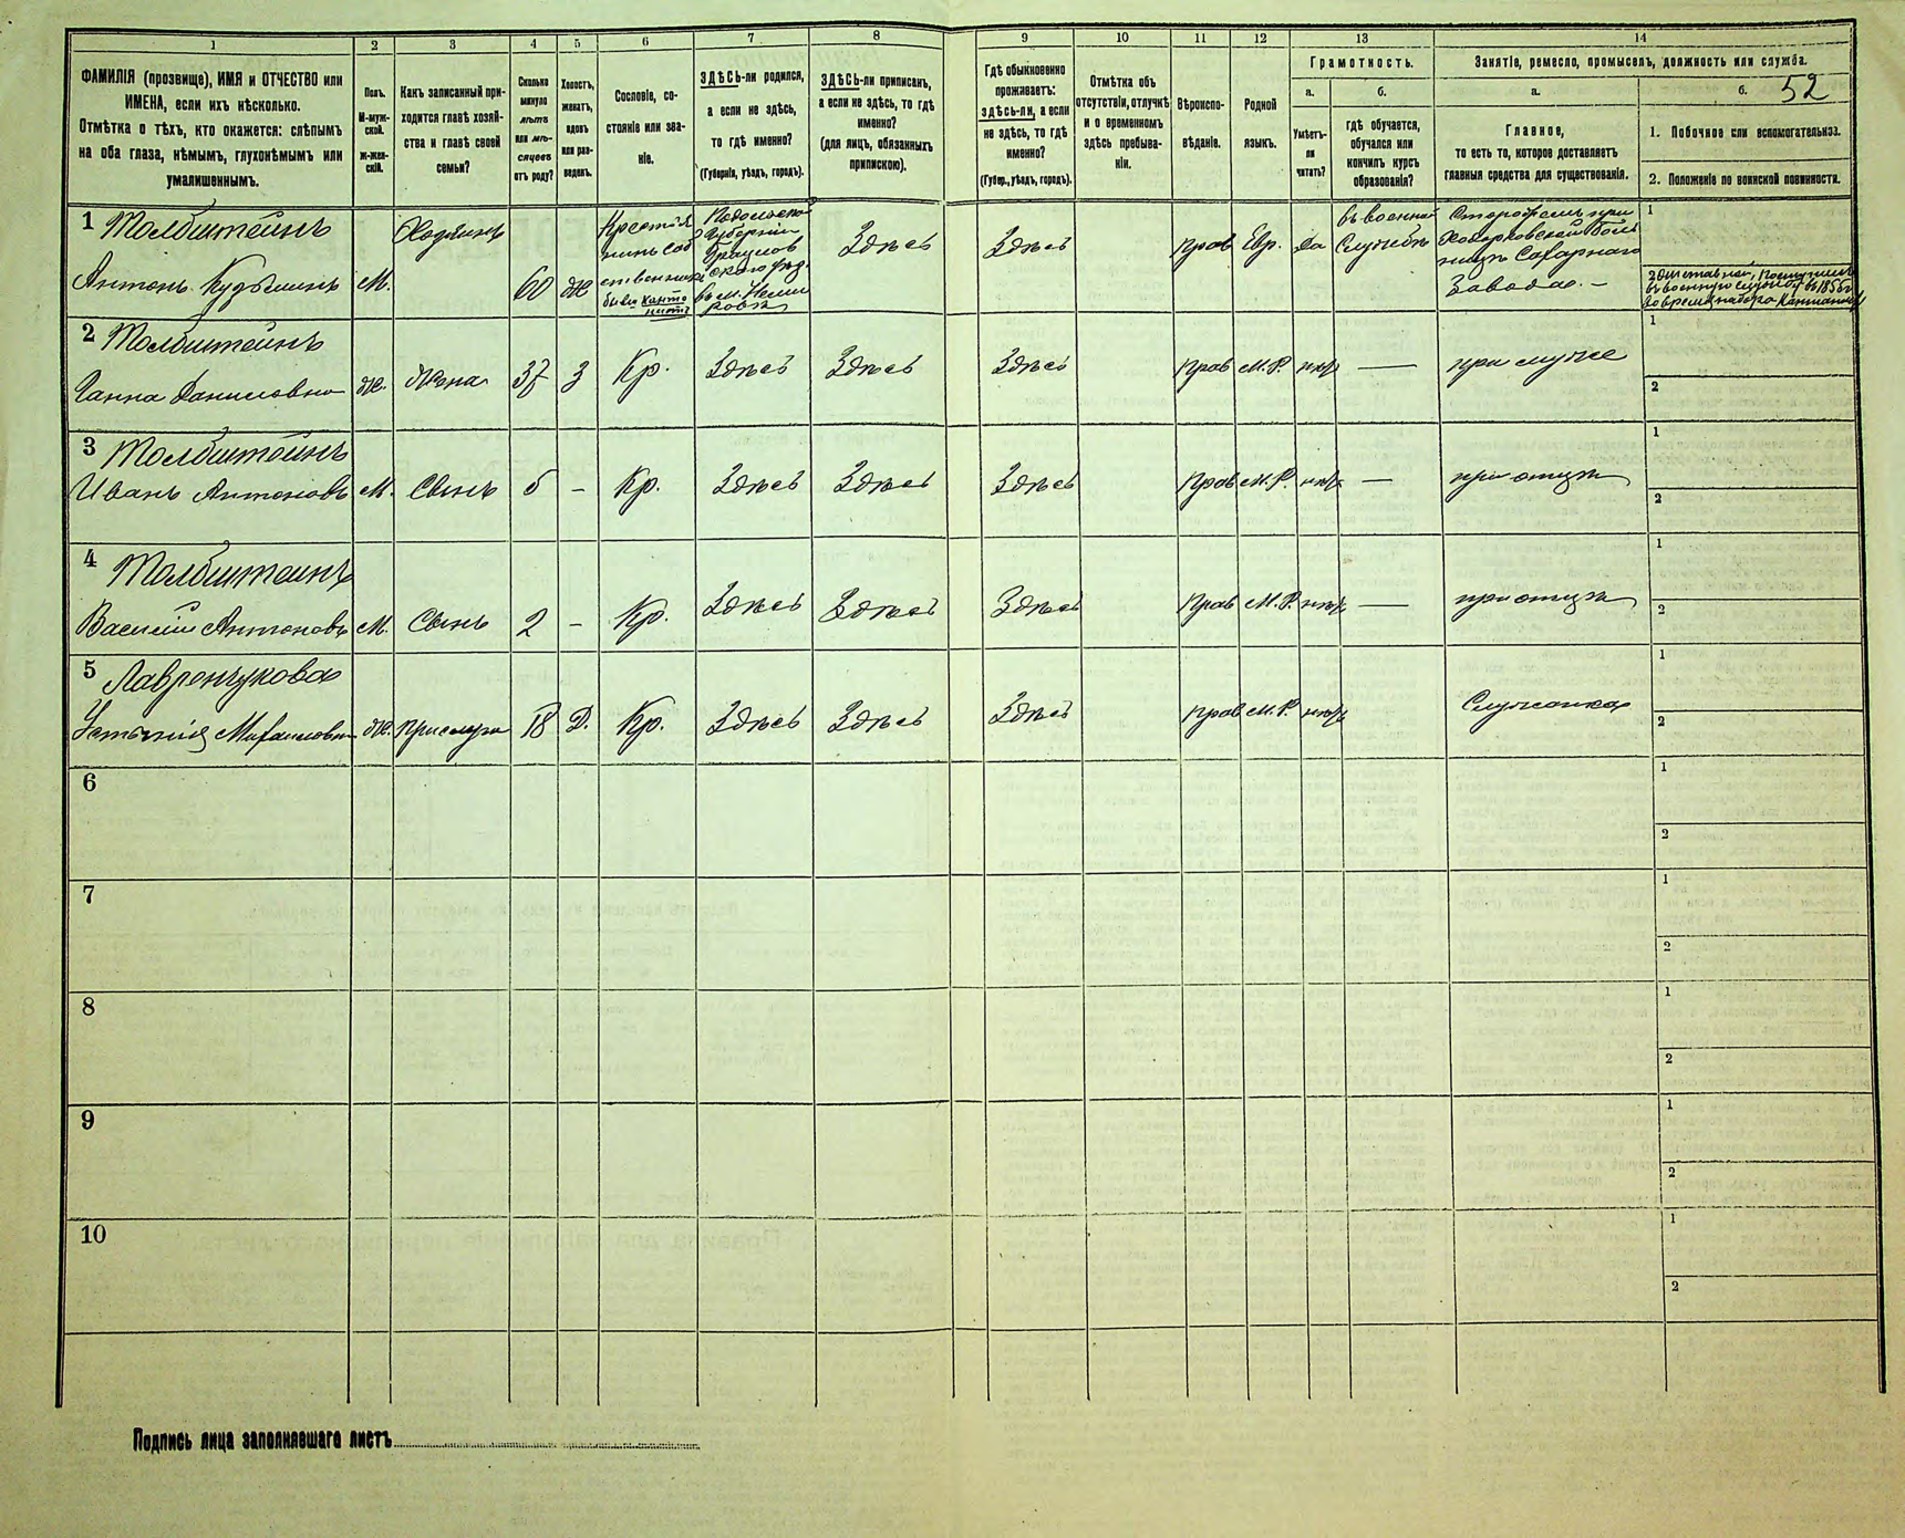 1 2 3 4 5 6 7 8 9 10 11 12 13 14
ФАМИЛІЯ (прозвище), ИМЯ и ОТЧЕСТВО или
ИМЕНА, если ихъ нѣсколько.
Отмѣтка о тѣхъ, кто окажется: слѣпымъ
на оба глаза, нѣмымъ, глухонѣмымъ или
умалишеннымъ.
Полъ.
М-муж-
ской.
Ж-жен-
скій.
Какъ записанный при-
ходится главѣ хозяй-
ства и главѣ своей
семьи?
Сколько
минуло
лѣтъ
или мѣ-
сяцевъ
отъ роду?
Холостъ,
женатъ,
вдовъ
или раз-
веденъ.
Сословіе, со-
стояніе или зва-
ніе.
ЗДѢСЬ-ли родился,
а если не здѣсь,
то гдѣ именно?
(Губернія, уѣздъ, городъ).
ЗДѢСЬ-ли приписанъ,
а если не здѣсь, то гдѣ
именно?
(для лицъ, обязанныхъ
припискою).
Гдѣ обыкновенно
проживаетъ:
здѣсь-ли, а если
не здѣсь, то гдѣ
именно?
(Губер., уѣздъ, городъ).
Отмѣтка объ
отсутствіи, отлучкѣ
и о временномъ
здѣсь пребыва-
ніи.
Вѣроиспо-
вѣданіе.
Родной
языкъ.
Грамотность.
а.
Умѣетъ-
ли
читать?
б.
гдѣ обучается,
обучался или
кончилъ курсъ
образованія?
Занятіе, ремесло, промыселъ, должность или служба.
а.
Главное,
то есть то, которое доставляетъ
главныя средства для существованія.
б. 52
1. Побочное или вспомогательное.
2. Положеніе по воинской повинности.
1 Толбштейнъ
Антонъ Кузьминъ
М.
Хозяинъ
60
Ж
Крестья
нинъ соб
ственникъ
бывш. канто
нистъ
Подольской
Губерніи
Брацлав
скаго уѣзд.
въ м. Неми
ровѣ
Здѣсь
Здѣсь
Прав
Евр.
да
въ военной
службѣ
Сторожемъ при
Ходорковской боль
ницѣ Сахарнаго
Завода. —
1
2 Отставной, поступилъ
въ военную службу въ
во время набора Кантонист
2 Толбштейнъ
Ганна Даниловна Ж. Жена 37 З Кр. Здѣсь Здѣсь Здѣсь Прав М.Р. нѣтъ — при мужѣ
1
2
3 Толбштейнъ
Иванъ Антоновъ М. Сынъ 5 - Кр. Здѣсь Здѣсь Здѣсь Прав М.Р. нѣтъ — при отцѣ
1
2
4 Толбштейнъ
Василій Антоновъ М. Сынъ 2 - Кр. Здѣсь Здѣсь Здѣсь Прав М.Р. нѣтъ — при отцѣ
1
2
5 Лавренчукова
Михаиловна Ж. Прислуга 18 Д. Кр. Здѣсь Здѣсь Здѣсь Прав М.Р. нѣтъ Служанка
1
2
6
1
2
7
1
2
8
1
2
9
1
2
10
1
2
Подпись лица заполнявшаго листъ